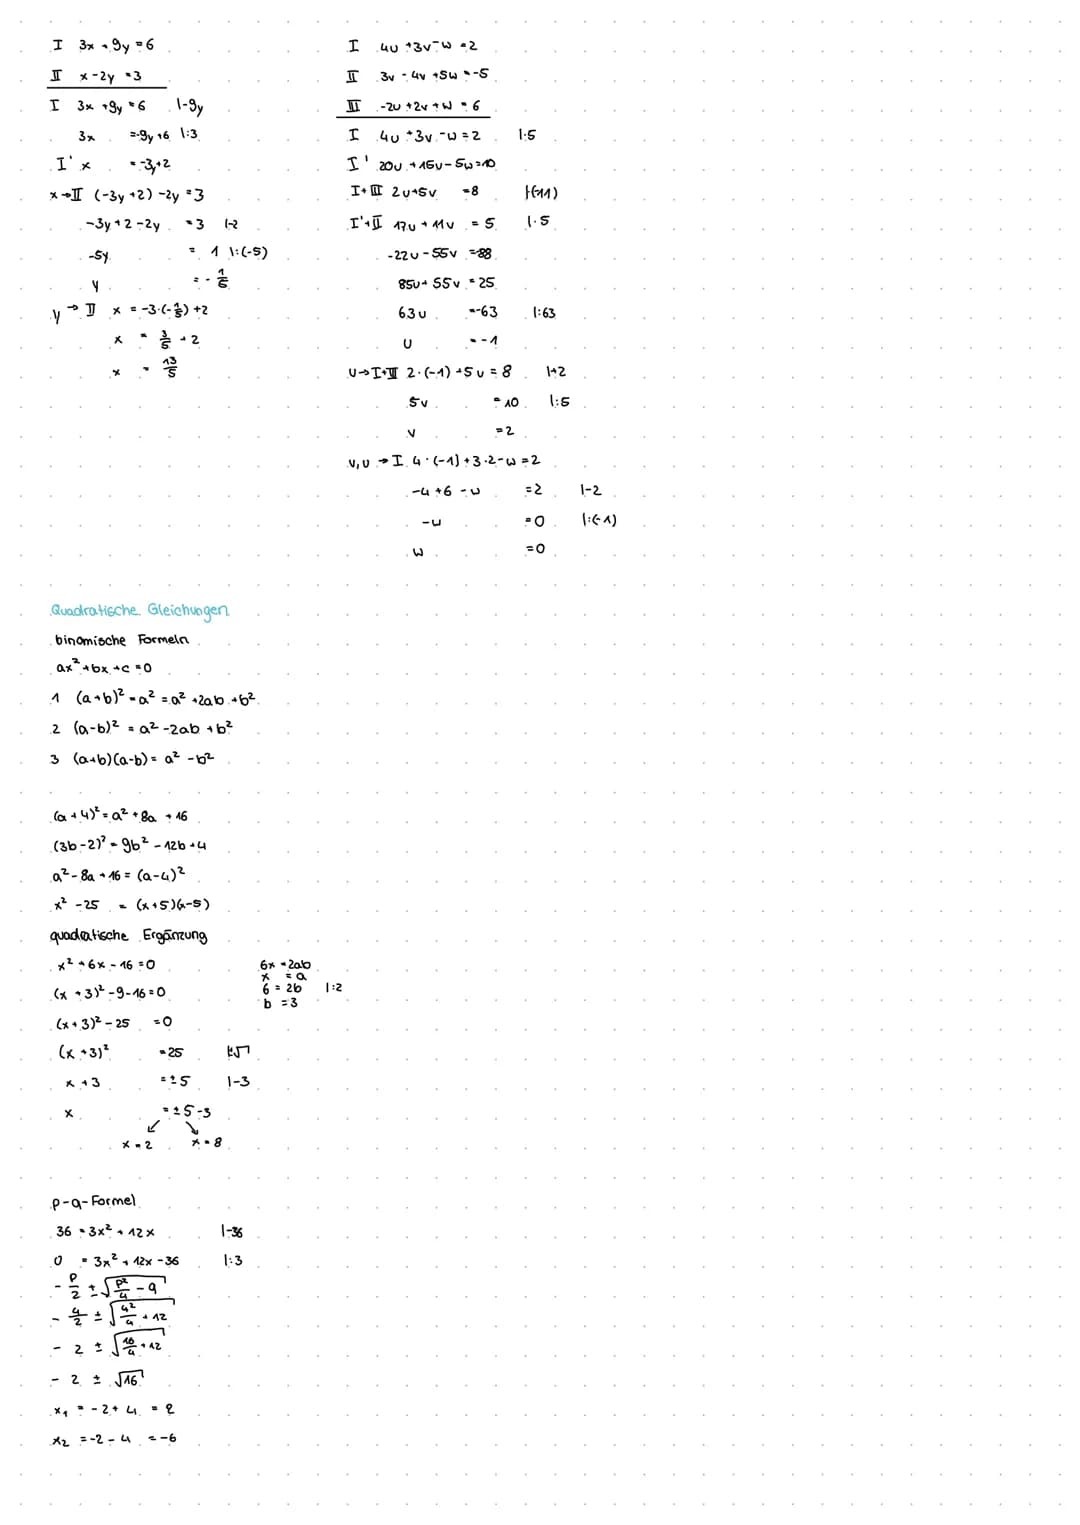 I 3x + 9y = 6
II x - 2y = 3
I 3x + 9y = 6 |-9y
3x = -9y +6 |:3
I' x = -3y+2
x → II (-3y +2) -2y = 3
-3y + 2 - 2y = 3 |-2
-5y = 1 |:(-5)
y = - 1/5
y → II x = -3·(-1/5) +2
x = 3/5 + 2
x = 13/5
I 4u +3v - w = 2
II 3v - 4v +5w = -5
III -2u +2v + w = 6
I 4u +3v - w = 2 |·5
I' 20u + 15v - 5w = 10
I+III 2u+5v = 8 |·(-11)
I'+II 17u + 11v = 5 |·5
-22u - 55v = -88
85u + 55v = 25
63u = -63 |:63
u = -1
u → I+III 2·(-1) +5v = 8 |+2
5v = 10 |:5
v = 2
v, u → I 4·(-1) + 3·2 - w = 2
-4 +6 - w = 2 |-2
-w = 0 |:(-1)
w = 0
Quadratische Gleichungen
binomische Formeln
ax² + bx + c = 0
1 (a+b)² = a² = a² + 2ab + b²
2 (a-b)² = a² - 2ab + b²
3 (a+b)(a-b) = a² - b²
(a + 4)² = a² + 8a + 16
(3b - 2)² = 9b² - 12b + 4
a² - 8a + 16 = (a-4)²
x² - 25 = (x+5)(x-5)
quadratische Ergänzung
x² + 6x - 16 = 0
(x + 3)² - 9 - 16 = 0
(x + 3)² - 25 = 0
(x + 3)² = 25 |±√
x + 3 = ±5 |-3
x = ±5-3
x = 2 x = 8
6x = 2ab
x = a
6 = 2b |:2
b = 3
p-q-Formel
36 = 3x² + 12x |-36
0 = 3x² + 12x - 36 |:3
- p/2 ± √(p²/4 - q)
- 4/2 ± √(4²/4 + 12)
- 2 ± √(16/4 + 12)
- 2 ± √16
x₁ = -2 + 4 = 2
x₂ = -2 - 4 = -6